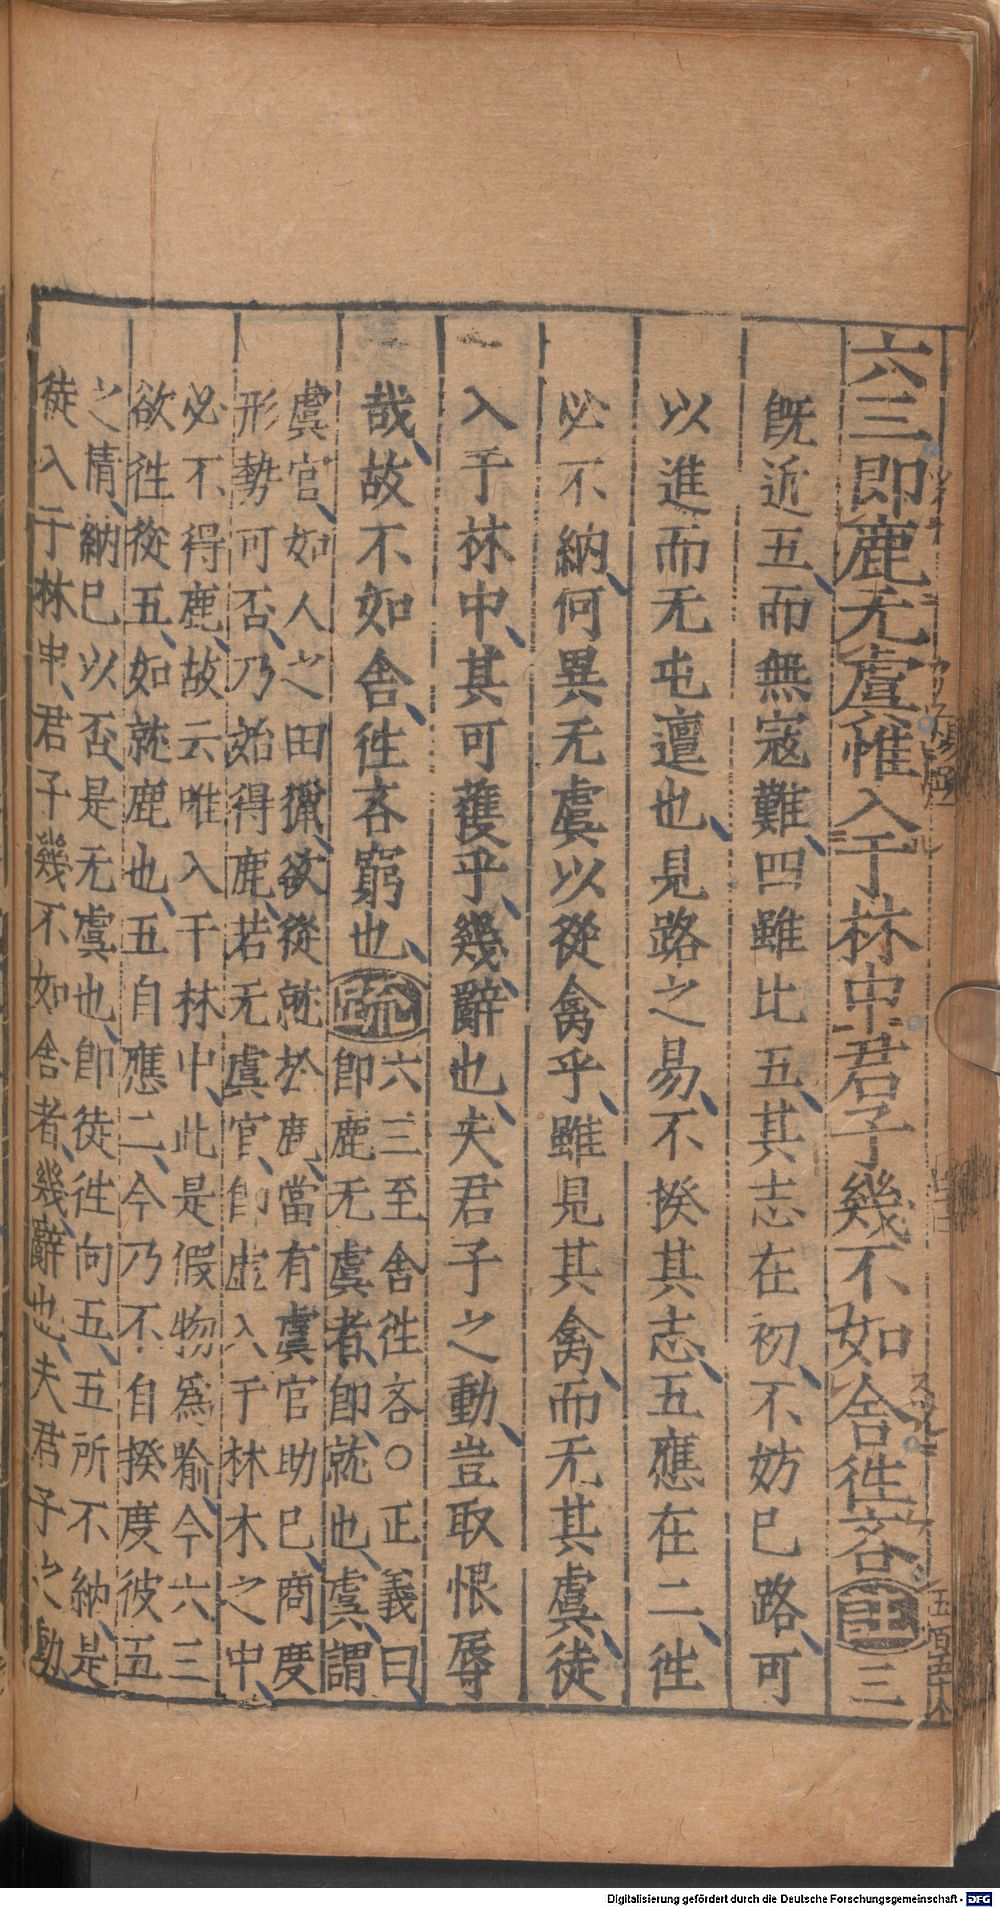 六三即鹿无虞惟入于林中君子幾不如舍徃吝 註 三
既近五而無寇難四雖比五其志在初不妨已路可
以進而无屯邅也見路之易不揆其志五應在二徃
必不納何異无虞以從禽乎雖見其禽而无其虞徒
入于林中其可獲乎幾辭也夫君子之動豈取恨辱
哉故不如舍徃吝窮也 疏
六三至舍徃吝○正義曰
即鹿无虞者即就也虞謂
虞官如人之田獵欲從就於鹿當有虞官助已商度
形勢可否乃始得鹿若无虞官即虛入于林木之中
必不得鹿故云唯入于林中此是假物爲喻今六三
欲徃從五如就鹿也五自應二今乃不自揆度彼五
之情納已以否是无虞也即徒徃向五五所不納是
徒入于林中君子幾不如舍者幾辭也夫君子之動
五百五十八
Digitalisierung gefördert durch die Deutsche Forschungsgemeinschaft - DFG